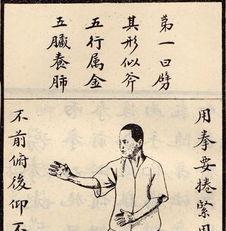 第一曰劈
其形似斧
五行属金
五臟養肺
用拳要捲緊用
不前俯後仰不